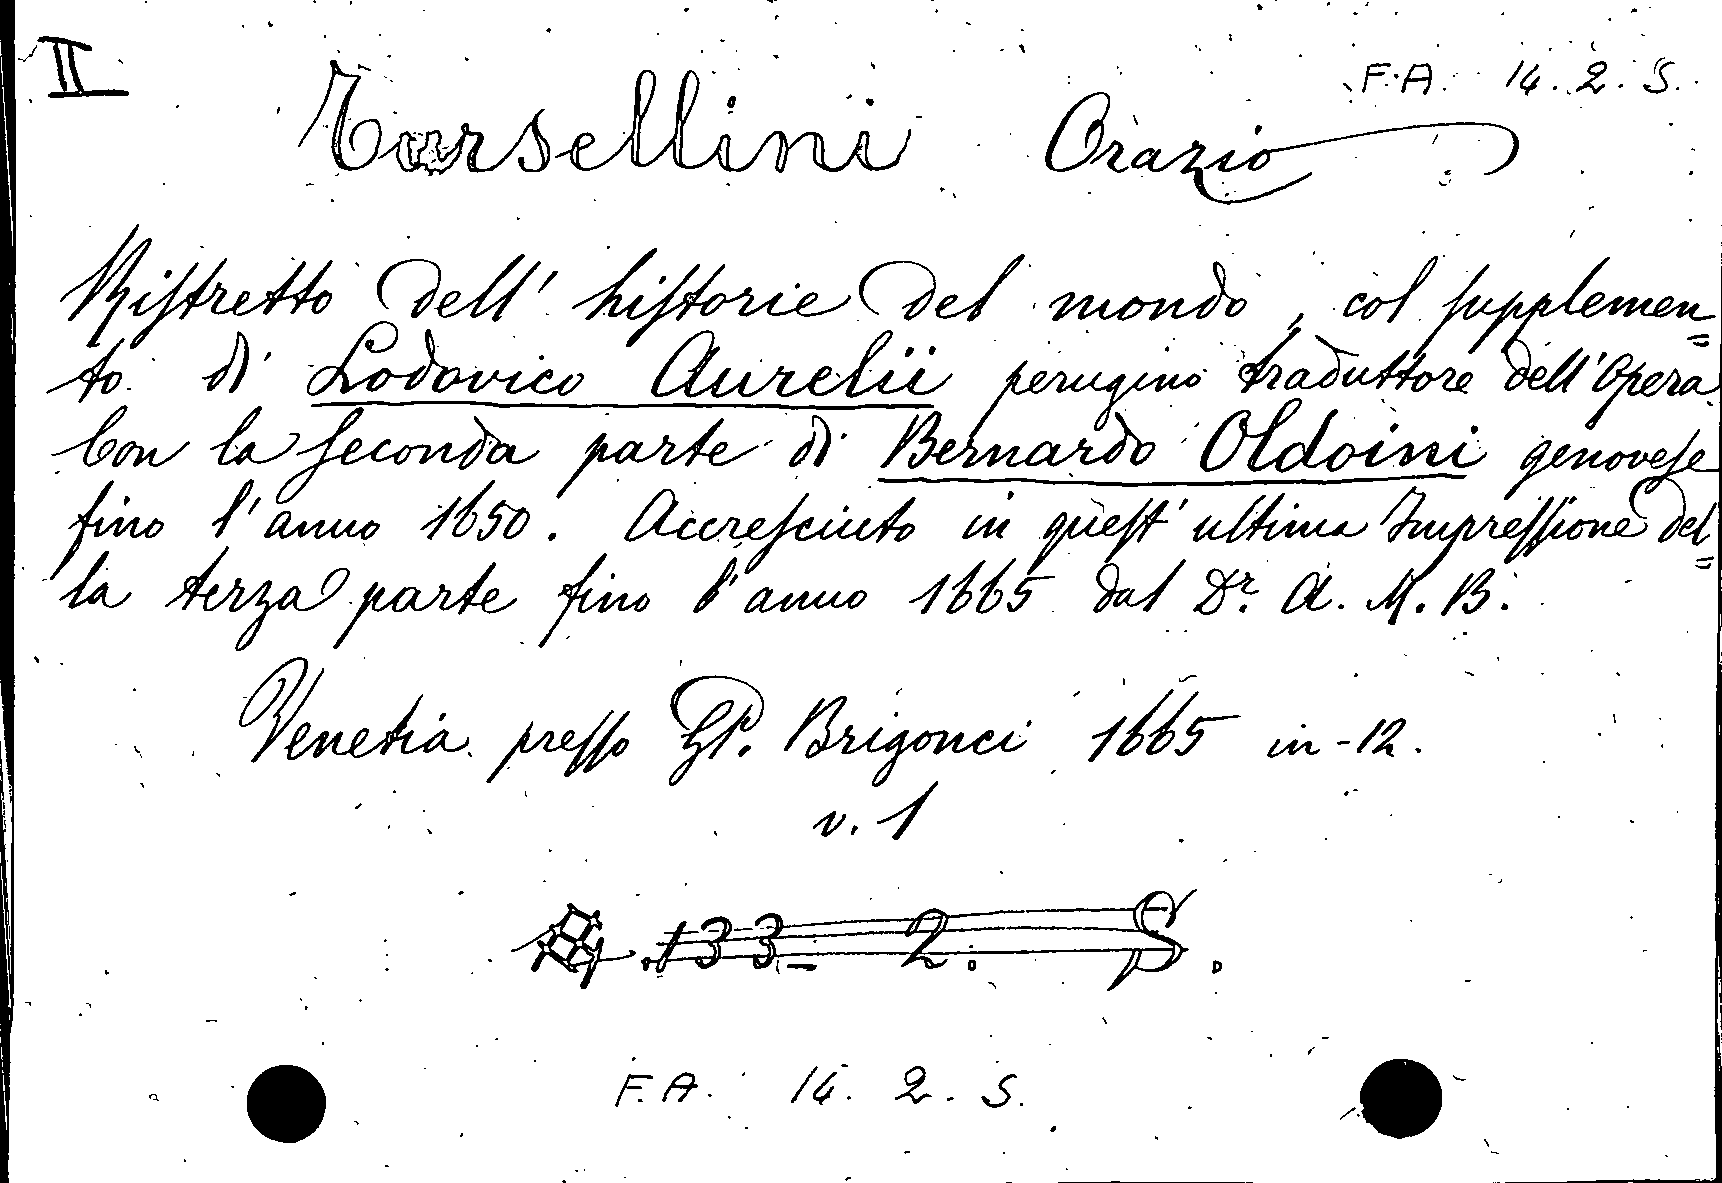 II
F.A. 14. 2. S.
Torsellini Orazio
Ristretto dell' historie del mondo, col supplemen=
to di Lodovico Aurelii perugino traduttore dell'Opera
Con la seconda parte di Bernardo Oldoini genovese
fino l'anno 1650. Accresciuto in quest'ultima Impressione del=
la terza parte fino l'anno 1665 dal Dr. A. M. B.
Venetia presso GP. Brigonci 1665 in-12.
v. 1
133 - 2. S.
F.A. 14. 2. S.